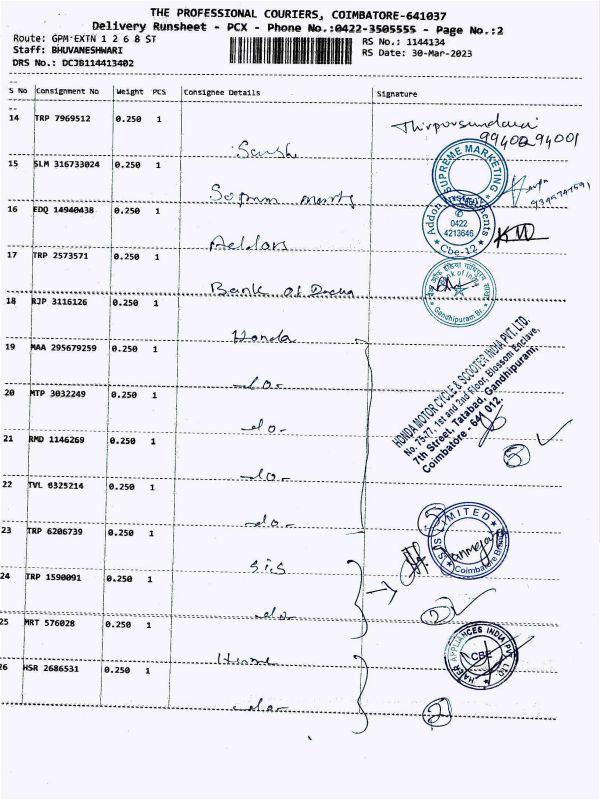 THE PROFESSIONAL COURIERS, COIMBATORE-641037
Delivery Runsheet - PCX - Phone No.:0422-3505555 - Page No.:2
Route: GPM-EXTN 1 2 6 8 ST
RS No.: 1144134
Staff: BHUVANESHWARI
RS Date: 30-Mar-2023
DRS No.: DCJB114413402
S No Consignment No Weight PCS Consignee Details Signature
14 TRP 7969512 0.250 1
99402 94001
15 SLM 316733024 0.250 1
SUPREME MARKETING
16 EDQ 14940438 0.250 1
Addon
0422
4213646
Cbe-12
17 TRP 2573571 0.250 1
Bank of India
Bank of India
Gandhipuram Br.
18 RJP 3116126 0.250 1
Honda
HONDA MOTOR CYCLE & SCOOTER INDIA PVT. LTD.
No. 75-77, 1st and 2nd Floor, Blossom Enclave,
7th Street, Tatabad, Gandhipuram,
Coimbatore - 641 012.
19 MAA 295679259 0.250 1
-do-
20 MTP 3032249 0.250 1
-do-
21 RMD 1146269 0.250 1
-do-
5
22 TVL 6325214 0.250 1
-do-
23 TRP 6206739 0.250 1
SIS
SIS LIMITED
Coimbatore Branch
24 TRP 1590091 0.250 1
-do-
2
25 MRT 576028 0.250 1
HAIER APPLIANCES INDIA PVT. LTD.
CBE
26 HSR 2686531 0.250 1
-do-
2